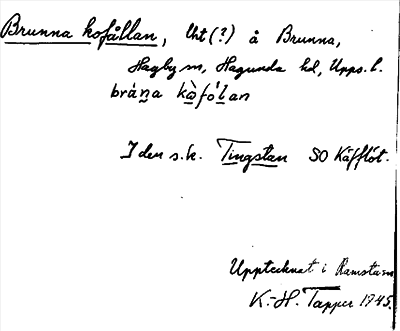 Brunna kofållan, Uht (?) å Brunna,
Hagby sn, Hagunda hd, Upps. l.
bråna kàfólan
I den s.k. Tingstan SO Käfflöt.
Upptecknat i Ramstasn
K.-H. Tapper 1945.